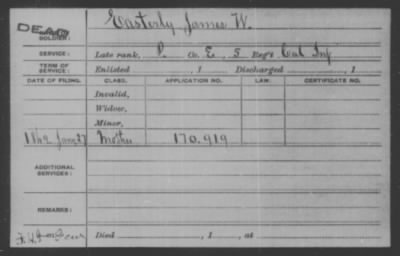 DEAD
SOLDIER: Easterly James W.
SERVICE: Late rank, P. Co. E, 5 Reg't Cal Inf
TERM OF SERVICE: Enlisted , 1 Discharged , 1
DATE OF FILING. CLASS. APPLICATION NO. LAW. CERTIFICATE NO.
Invalid,
Widow,
Minor,
1869 Jany 27 Mother 170.919
ADDITIONAL SERVICES:
REMARKS:
Died , 1 , at